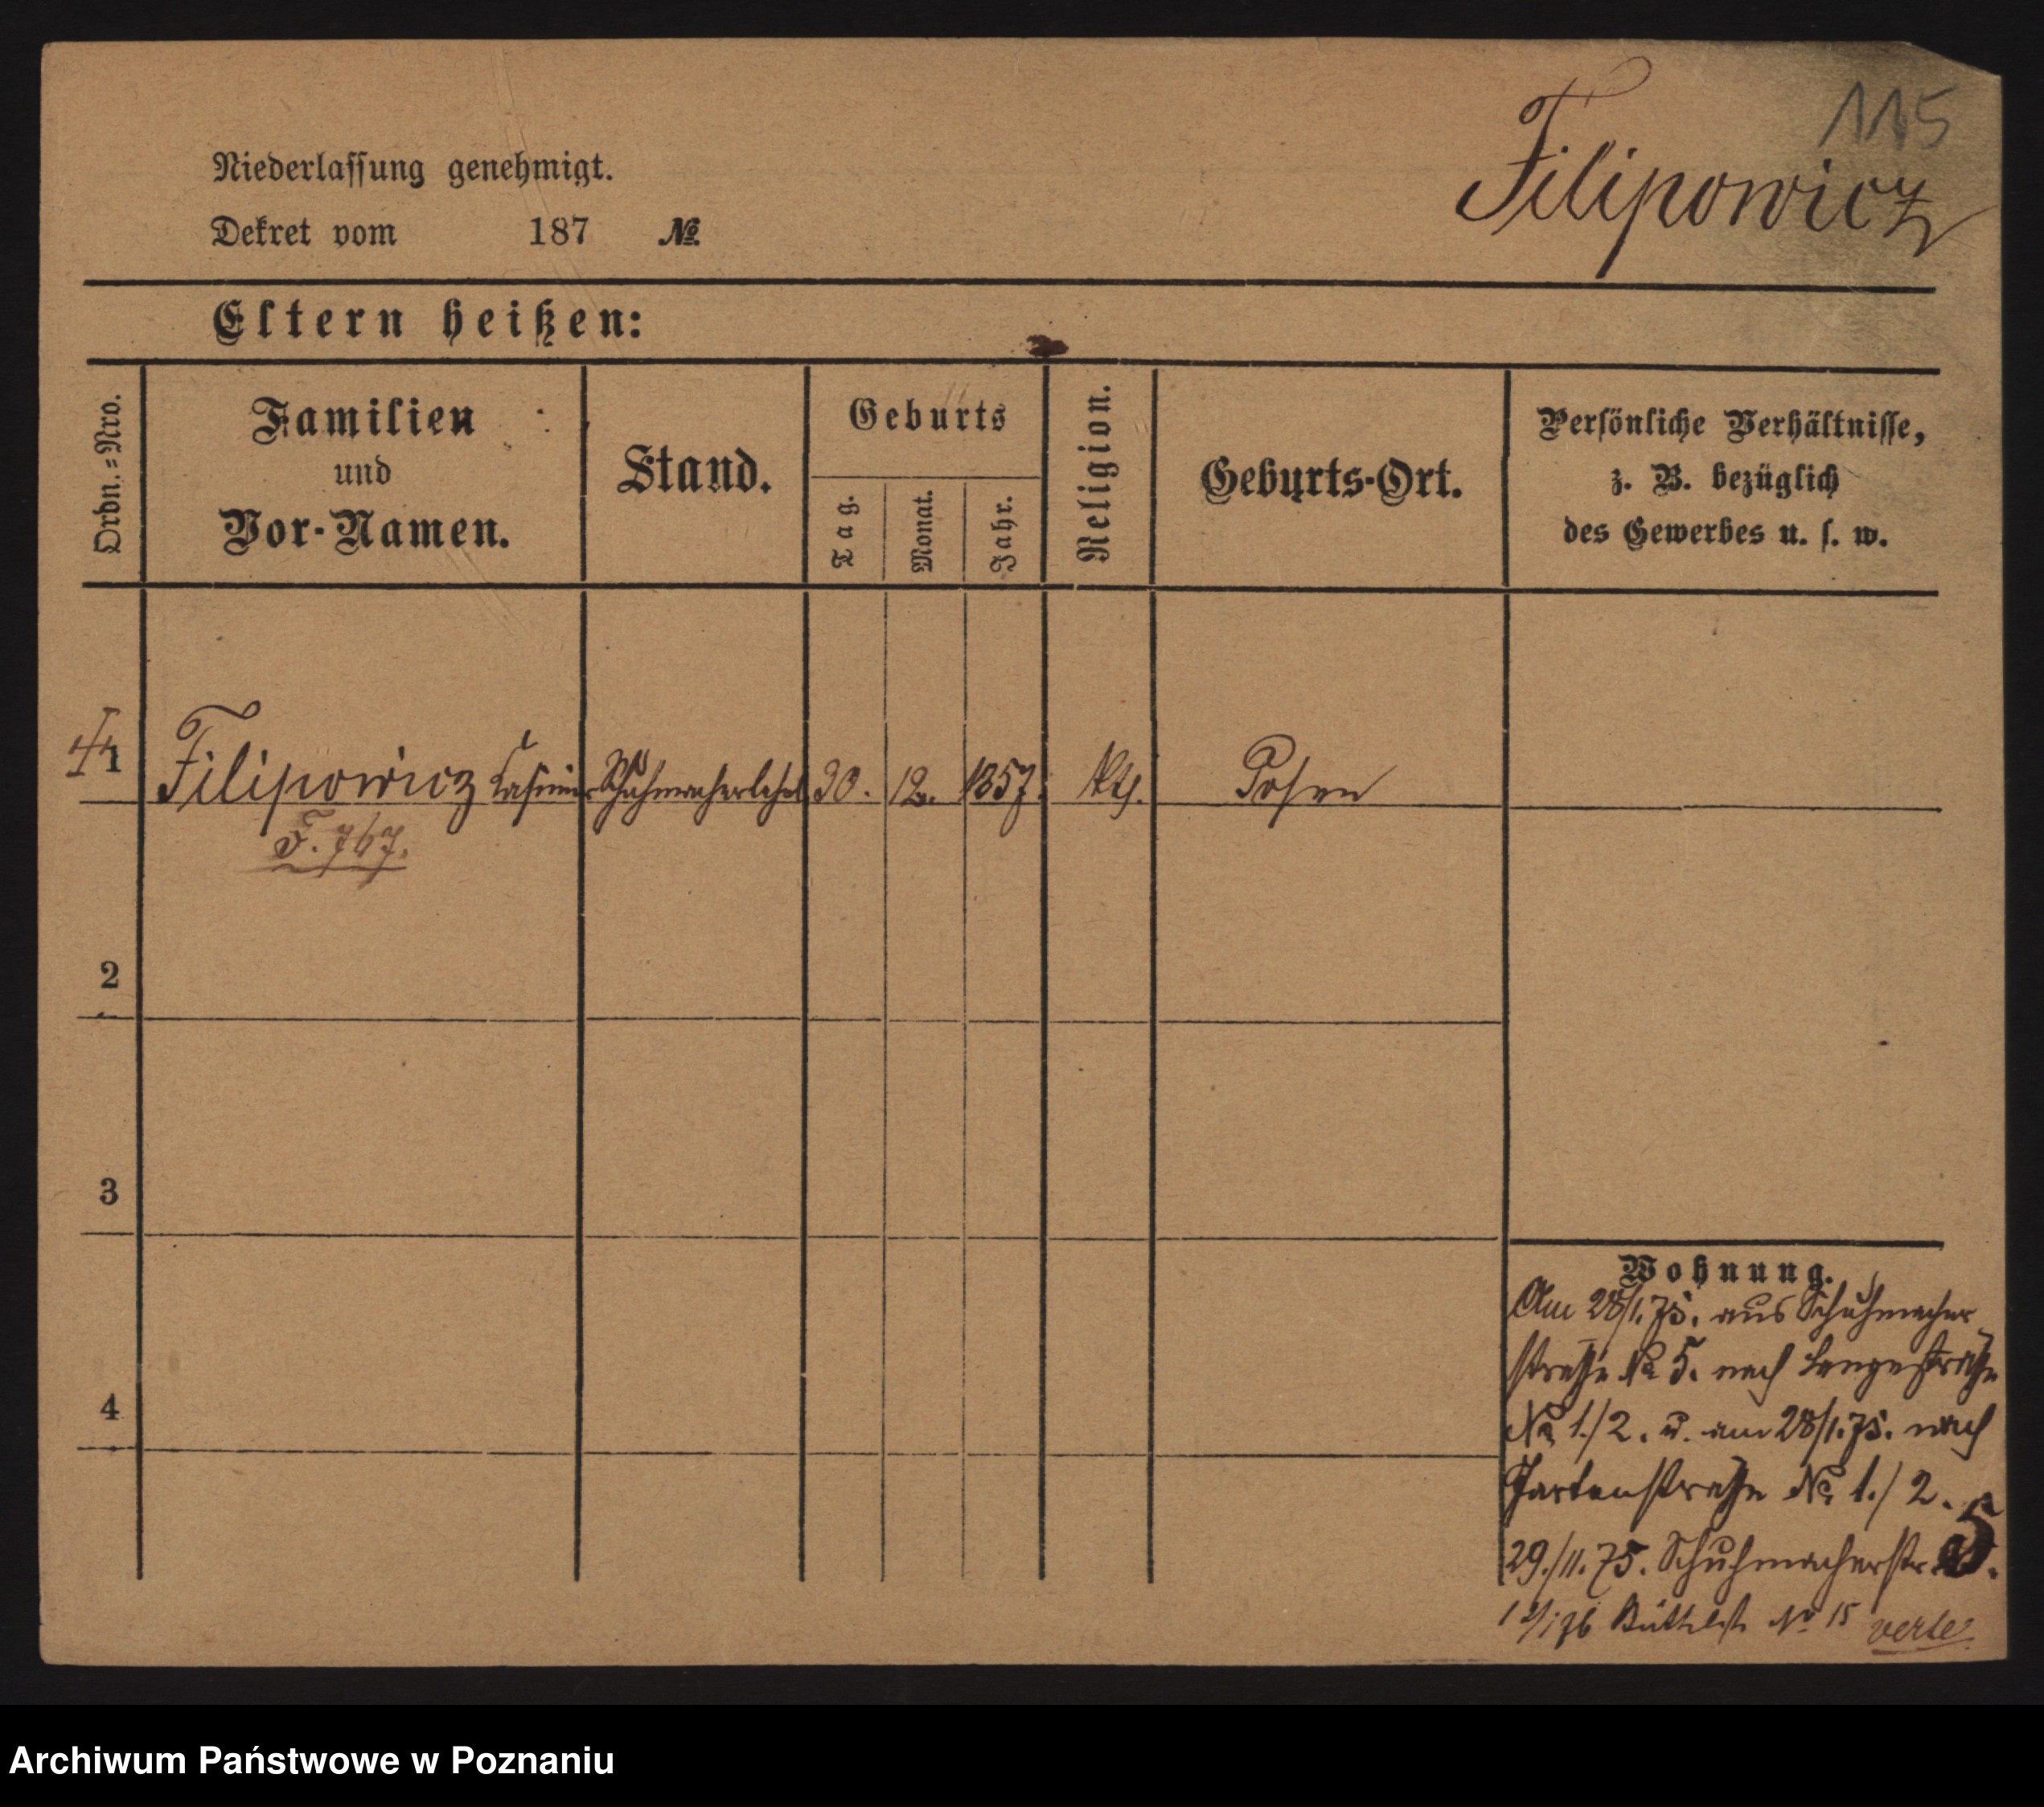 115
Filipowicz
Niederlassung genehmigt.
Dekret vom 187 №
Eltern heißen:
Ordn.=Nro.
Familien
und
Vor-Namen.
Stand.
Geburts
Tag.
Monat.
Jahr.
Religion.
Geburts-Ort.
Persönliche Verhältnisse,
z. B. bezüglich
des Gewerbes u. s. w.
1 Filipowicz Casimir Schuhmacherlehrl 30. 12. 1857. kth. Posen
F. 767.
2
3
4
Wohnung.
Am 28/1.75. aus Schuhmacher
straße № 5. nach Langestraße
№ 1./2. u. am 28/1.75. nach
Gartenstraße № 1./2.
29./11.75. Schuhmacherstr. 5.
1/76 Büttelst № 15 verte.
Archiwum Państwowe w Poznaniu